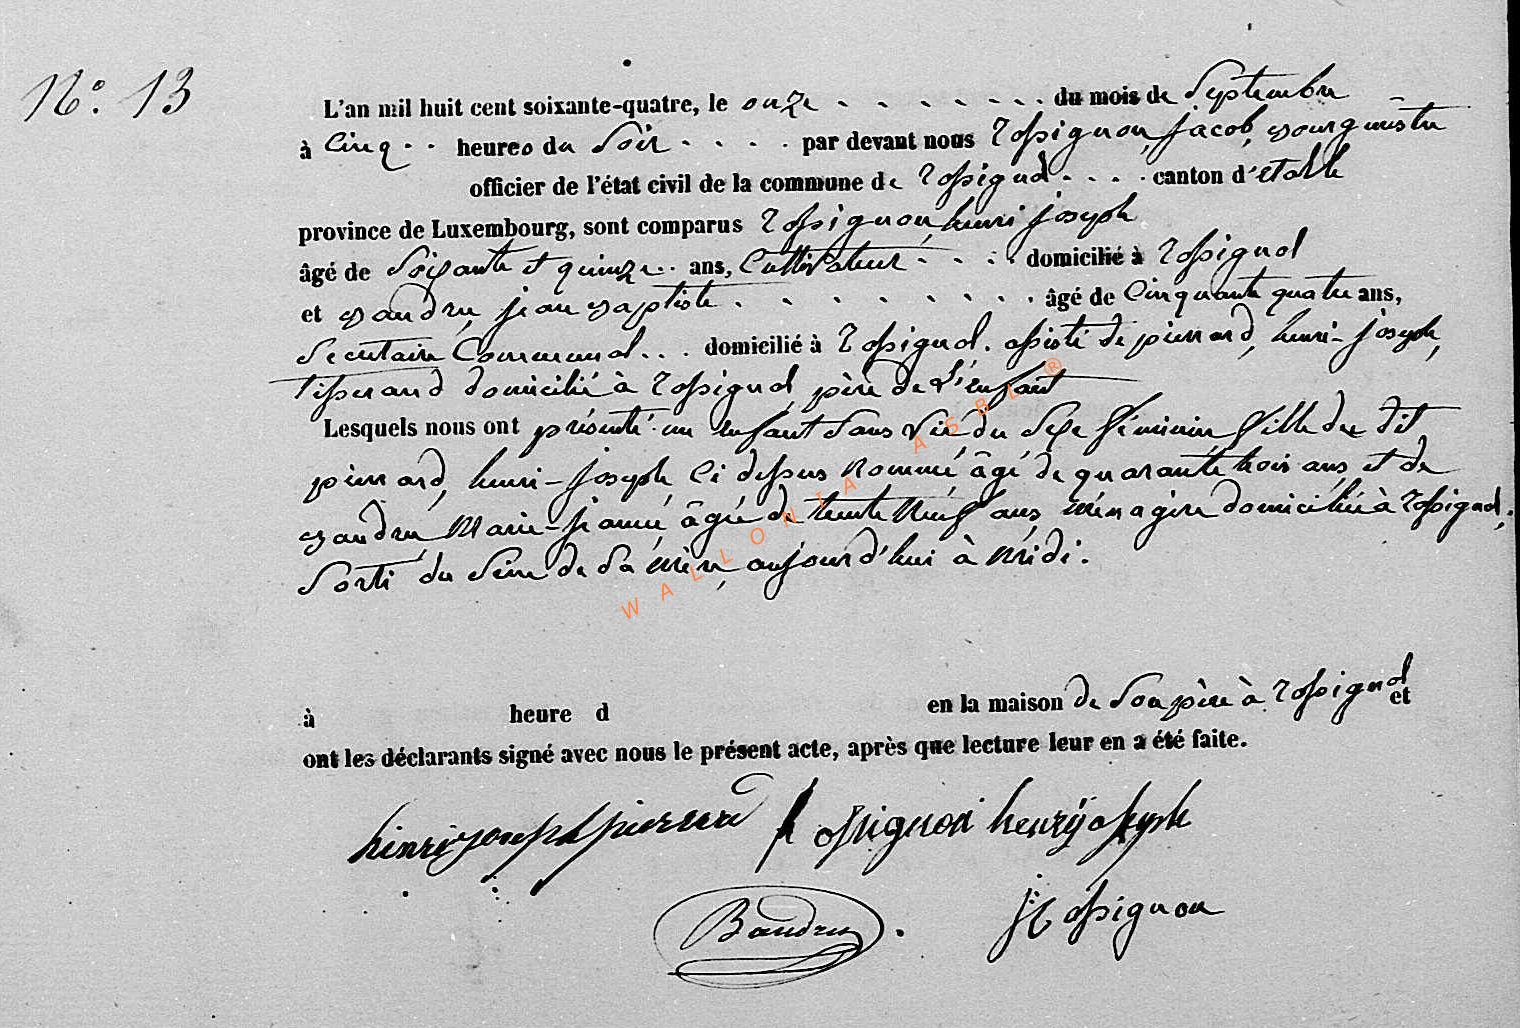 N.o 13
L'an mil huit cent soixante-quatre, le onze . . . . . . . . du mois de Septembre
à cinq . . heures du Soir . . . . par devant nous Rossignon, jacob, Bourguestre
officier de l'état civil de la commune de Rossignol . . . . canton d'étalle
province de Luxembourg, sont comparus Rossignon, henri joseph
âgé de Soixante et quinze . . ans, Cultivateur . . . . domicilié à Rossignol
et Baudru, jean Baptiste . . . . . . . . âgé de Cinquante quatre ans,
Secretaire Communal . . . domicilié à Rossignol. assisté de pierrard, henri-joseph,
tisserand domicilié à Rossignol, père de l'enfant
Lesquels nous ont présenté un enfant Sans vie du Sexe féminin fille du dit
pierrard, henri-joseph ci dessus nommé âgé de quarante trois ans et de
Baudru Marie-jeanne âgée de trente neuf ans ménagère domiciliée à Rossignol,
Sorti du Sein de Sa mère, aujourd'hui à midi.
à heure d en la maison de Son père à Rossignol et
ont les déclarants signé avec nous le présent acte, après que lecture leur en a été faite.
henri joseph pierrard Rossignon henry joseph
Baudru. J Rossignon
WALLONIA ASBL ®